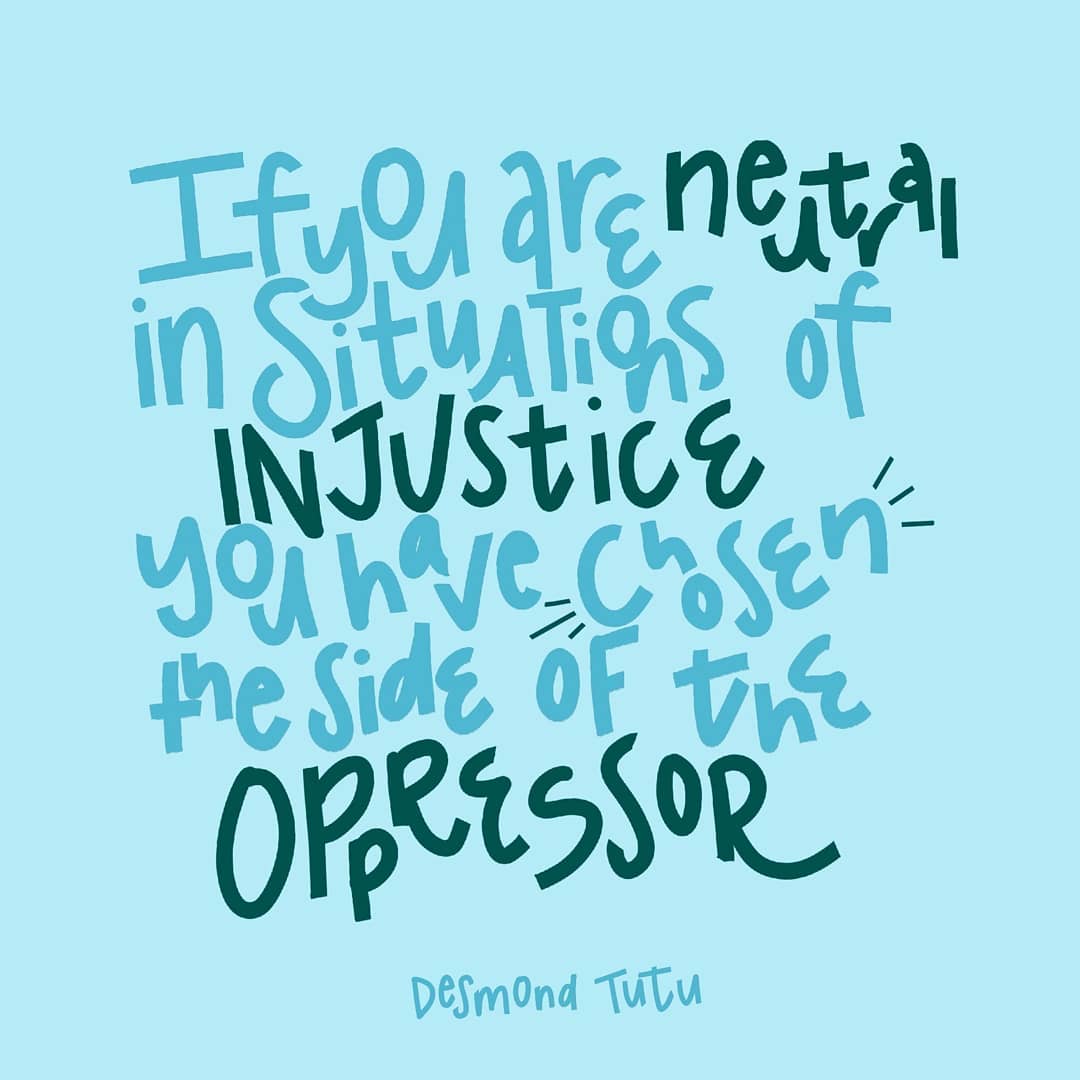 If you are neutral
in situations of
INJUSTICE
you have chosen
the side of the
OPPRESSOR
Desmond Tutu